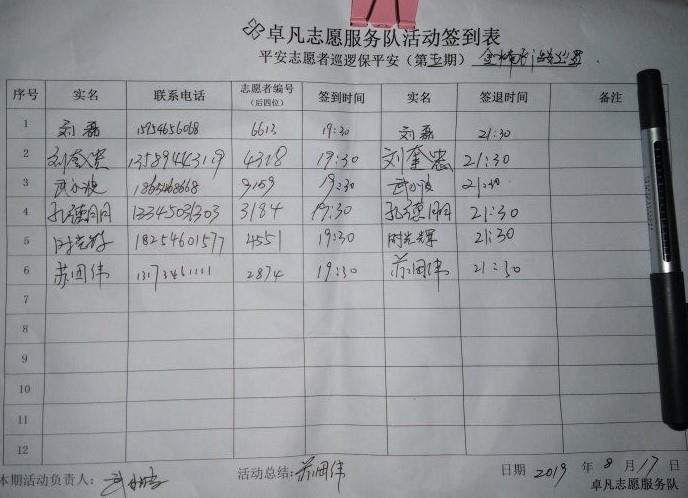 卓凡志愿服务队活动签到表
平安志愿者巡逻保平安（第五期）
序号 实名 联系电话 志愿者编号（后四位） 签到时间 实名 签退时间 备注
1 刘磊 15954656068 6613 19:30 刘磊 21:30
2 刘奎忠 13589463119 4318 19:30 刘奎忠 21:30
3 武小波 9159 19:30 武小波 21:30
4 3184 19:30 21:30
5 时光辉 18254601577 4551 19:30 时光辉 21:30
6 苏国伟 13173461111 2874 19:30 苏国伟 21:30
7
8
9
10
11
12
本期活动负责人： 活动总结：苏国伟 日期 2019 年 8 月 17 日
卓凡志愿服务队